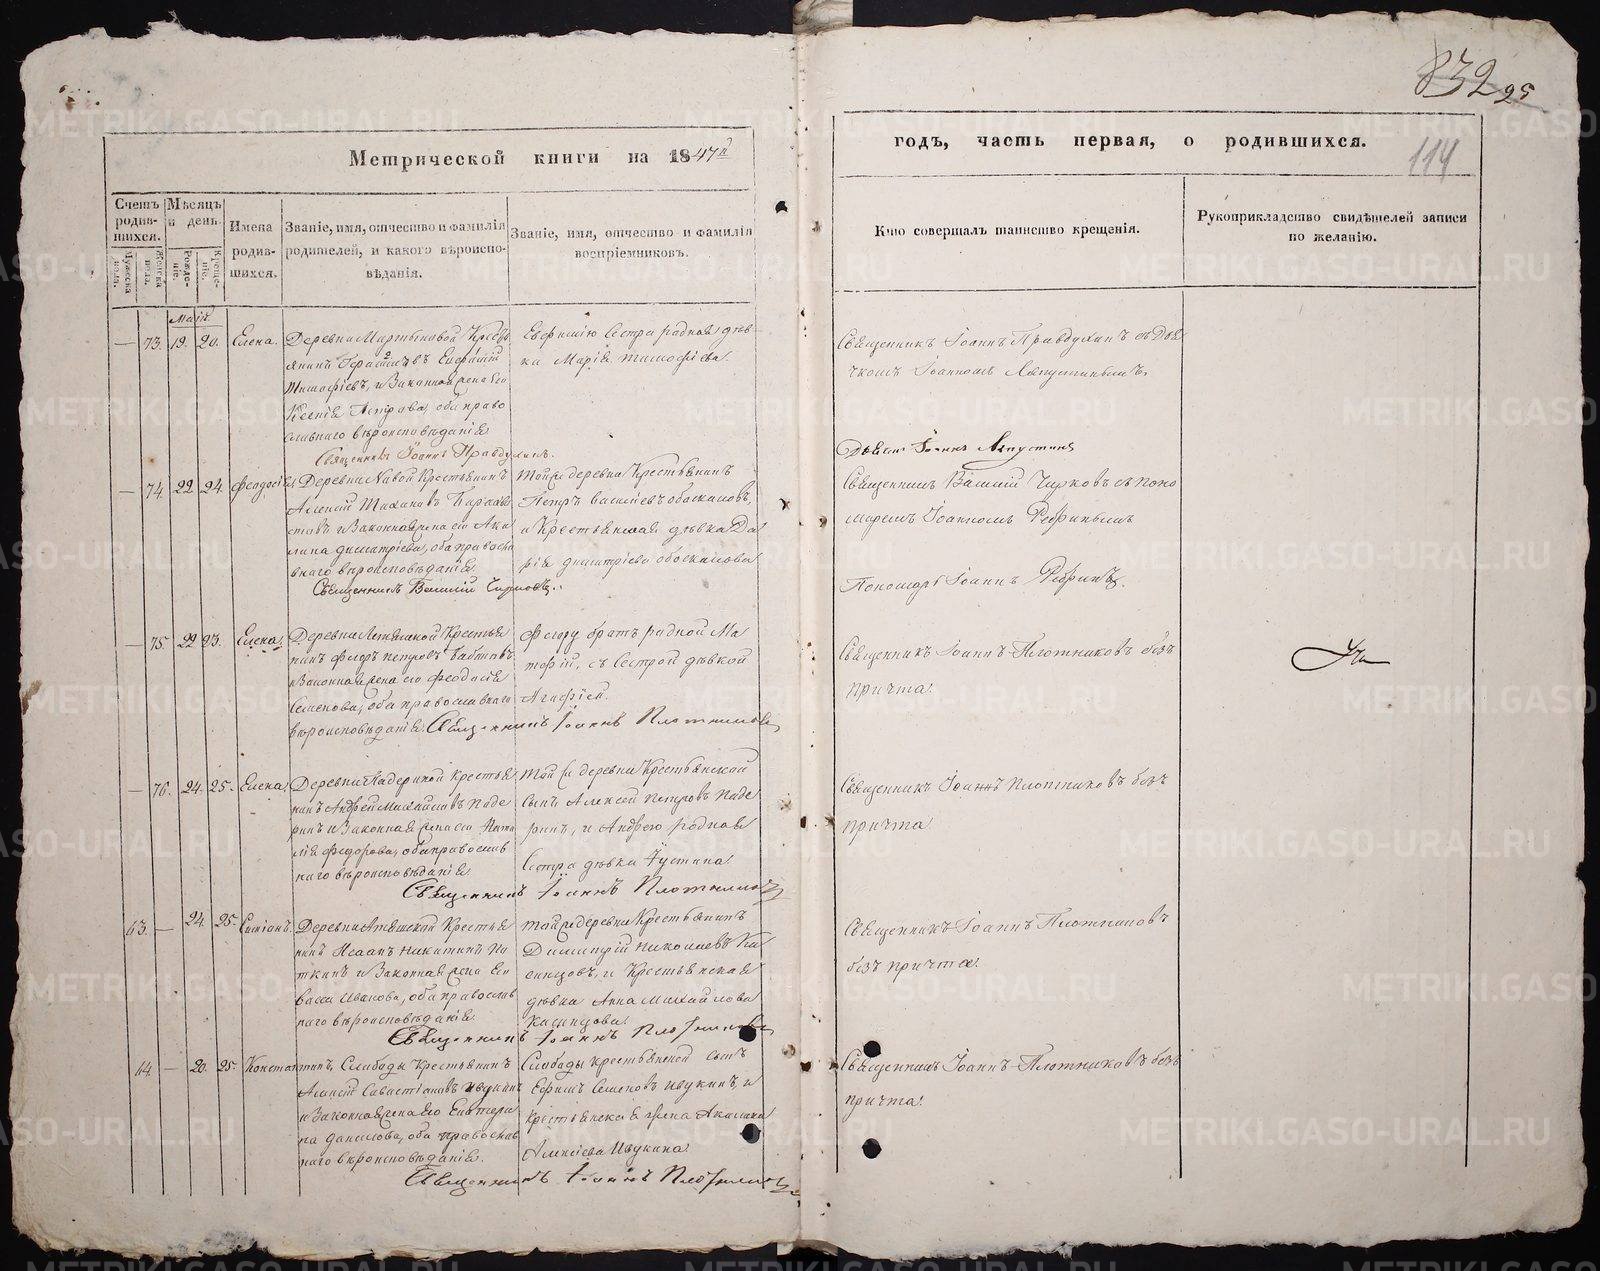 832 25
114
Метрической книги на 1847й
годъ, часть первая, о родившихся.
Счетъ родив-шихся.
Мужеска пола.
Женска пола.
Мѣсяцъ и день.
Рожде-ніе.
Креще-ніе.
Имена родив-шихся.
Званіе, имя, отчество и фамилія
родителей, и какого вѣроиспо-
вѣданія.
Званіе, имя, отчество и фамилія
воспріемниковъ.
Кто совершалъ таинство крещенія.
Рукоприкладство свидѣтелей записи
по желанію.
Май
— 73. 19. 20. Елена.
Деревни Мартыновой Кресть
янинъ Евфимій
Тимофѣевъ, и Законная жена его
Ксенія Петрова, оба право
славнаго вѣроисповѣданія
Священникъ Іоаннъ Правдухинъ.
Евфимію Сестра родная дѣв-
ка Марія Тимофѣева
Священникъ Іоаннъ Правдухинъ съ Дья
чкомъ Іоанномъ
Іоаннъ
— 74 22 24. Феодосія
Деревни Крестьянинъ
Алексій
и Законная жена его Аки
лина Димитріева, оба правосла
внаго вѣроисповѣданія
Священникъ Василій Чирковъ.
Той же деревни Крестьянинъ
Петръ Васильевъ
и Крестьянская дѣвка Да
рія Димитріева
Священникъ Василій Чирковъ съ Поно
маремъ Іоанномъ
Пономарь Іоаннъ
— 75. 22 23. Елена.
Деревни Крестья
нинъ Федоръ Петровъ
и Законная жена его Феодосія
Семенова, оба православнаго
вѣроисповѣданія. Священникъ Іоаннъ Плотниковъ
Федору братъ родной Ма
тфій, съ Сестрой дѣвкой
Агафіей.
Священникъ Іоаннъ Плотниковъ безъ
причта.
— 76. 24. 25. Елена.
Деревни Падериной Крестья
нинъ Андрей Михайловъ Паде
ринъ и Законная жена его Ната
лія Федорова, оба православ
наго вѣроисповѣданія
Священникъ Іоаннъ Плотниковъ
Той же деревни Крестьянской
сынъ Алексей Петровъ Паде
ринъ, и Андрею родная
Сестра дѣвка Іустина.
Священникъ Іоаннъ Плотниковъ безъ
причта
63. — 24. 25. Симіонъ.
Деревни Крестья
нинъ Исаакъ Никитинъ Ни
китинъ и Законная жена Ев
Иванова, оба православ
наго вѣроисповѣданія.
Священникъ Іоаннъ Плотниковъ
Той же деревни Крестьянинъ
Димитрій Николаевъ
и Крестьянская
дѣвка Анна Михайлова
Священникъ Іоаннъ Плотниковъ
безъ причта.
64. — 20. 25. Константинъ.
Слободы Крестьянинъ
Савастіановъ Ивукинъ
и Законная жена его Екатери
на Данилова, оба православ
наго вѣроисповѣданія.
Священникъ Іоаннъ Плотниковъ
Слободы крестьянской сынъ
Ефимъ Семеновъ Ивукинъ, и
крестьянская жена Акилина
Алексіева Ивукина
Священникъ Іоаннъ Плотниковъ безъ
причта.
METRIKI.GASO-URAL.RU